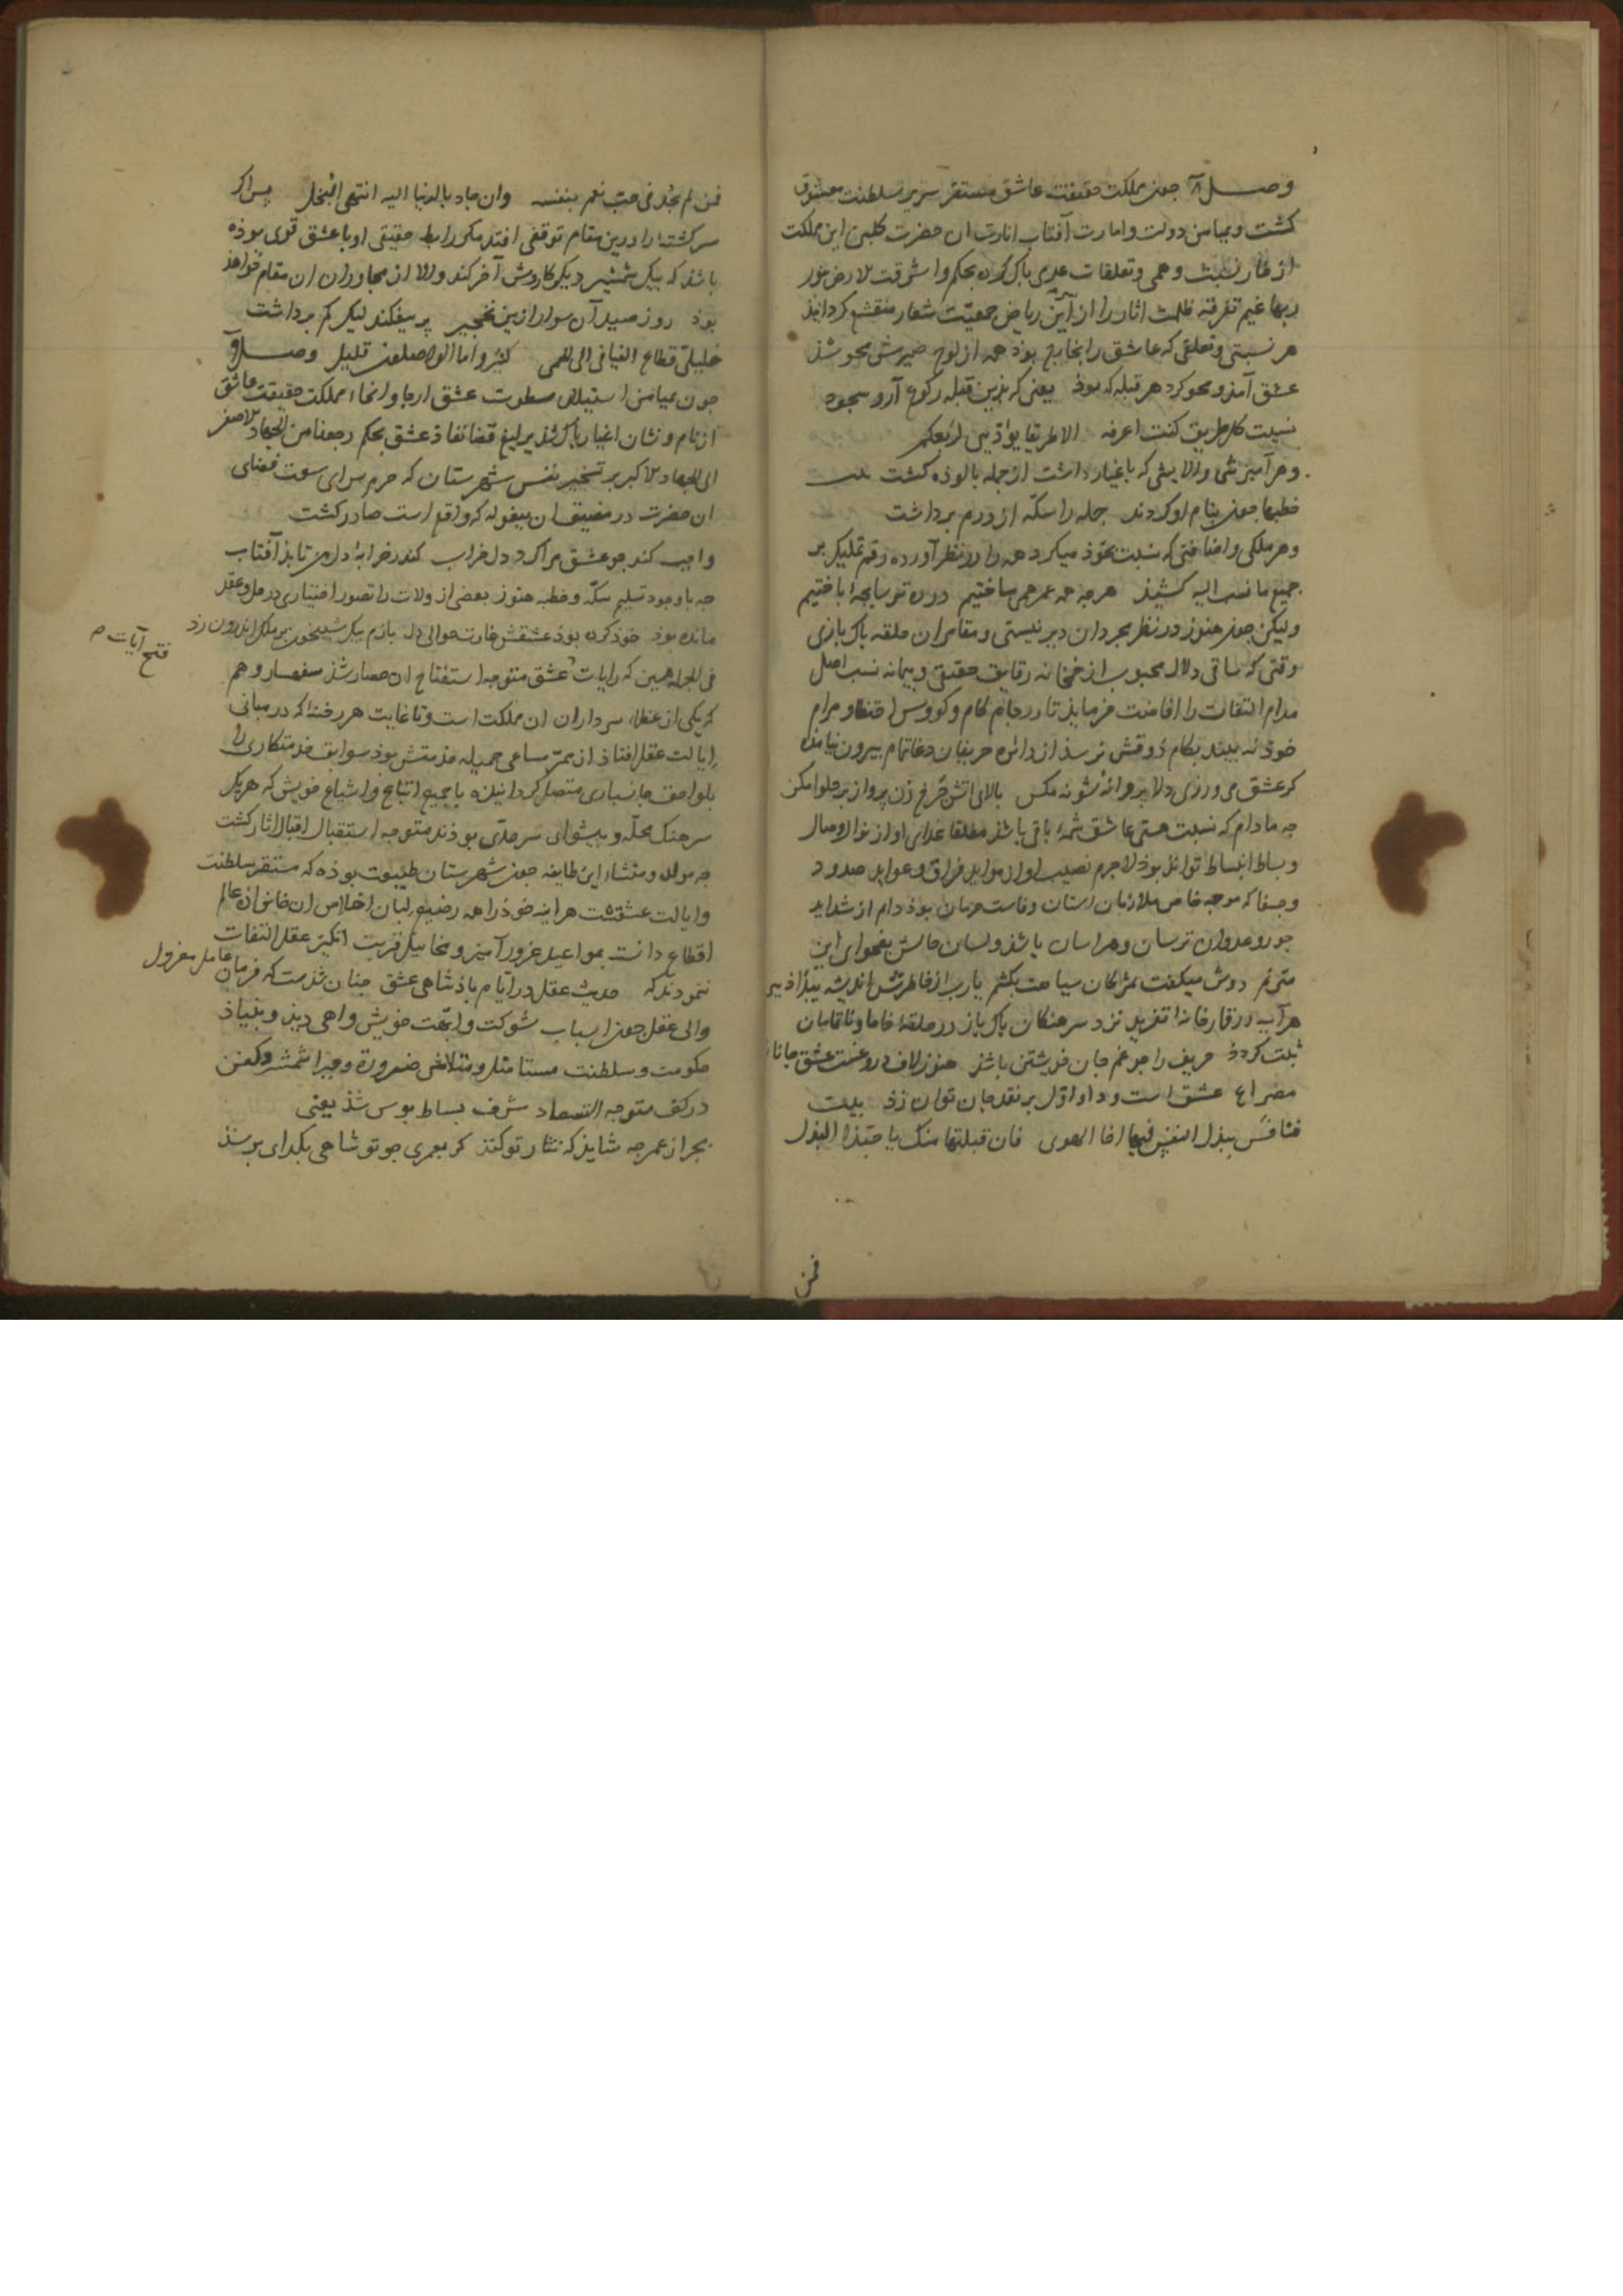 وصل آ جون مملکت حقیقت عاشق مستقر سریر سلطنت معشوق
کشت و بمیامن دولت و امارت آفتاب انارت ان حضرت کلبن این مملکت
از غار نسبت وهمی و تعلقات عدمی باک کرده بحکم واشرقت الارض بنور
ربها غیم تفرقه ظلمت اثار را از آیین ریاض جمعیّت شعار منقشع کردانیذ
هر نسبتی و تعلقی که عاشق را بخارج بوذ همه از لوح ضمیرش محو شذ
عشق آمذ و محو کرد هر قبله که بوذ یعنی که بذین قبله رکوع آر و سجود
نسیت کل طریق کنت اعرفه الا طریقا یؤدینی لربعکم
و هر آمیزشی و الایشی که باغیار داشت از جمله بالوذه کشت بیت
خطبها جون بنام او کردند جمله را سکّه از درم برداشت
و هر ملکی و اضافتی که نسبت بخوذ میکرد همه را در نظر آورده رقم تملیک بر
جمیع ما نسب الیه کشیذ هرجه همه عمر همی ساختیم در ره ترسابجه‌ا باختیم
ولیکن جون هنوز در نظر مجردان دیر نیستی و مقامران حلقه باک بازی
وقتی که ساقی دلال محبوب از خمخانه رقایق حقیقی و بیمانه نسب اصل
مدام التفات را افاضت فرمایذ تا در جام کام و کووس احتظا و مرام
خوذ نه بیند بکام ذوقش نرسذ از دائره حریفان دغا تمام بیرون نیامذه
کر عشق می ورزی دلا پروانه شو نه مکس بالای اتش چرخ زن پرواز بر حلوا مکن
جه مادام که نسبت هستی عاشق شمه‌ء باقی باشذ مطلقا غذای او از نوال وصال
و بساط انبساط توانذ بوذ لاجرم نصیب او از مواید فراق و عواید صدود
و جفا که موجه خاص ملازمان استان وفاست حرمان بوذ دام از شداید
جور و عدوان ترسان و هراسان باشذ و لسان حالش بفحوای این
مترنم دوش میکفت بمژکان سیاهت بکشم یا رب از خاطرش اندیشه بیداذ ببر
هرآینه در قمارخانه‌ا تفرید نزد سرهنکان باک باز در حلقه‌ا خاما و ناتمامان
ثبت کردذ حریف را جو غم جان خویشتن باشذ هنوز لاف دروغست عشق جانانش
مصراع عشق است و داو اوّل بر نقد جان توان زد بیت
فنافس ببذل النفس فیها اخا الهوی فان قبلتها منک یا حبّذا البذل
فمن
فمن لم یجُد فی حبّ نعم بنفسه وان جاد بالدنیا الیه انتهی البخل پس اکر
سرکشته‌ا را درین مقام توقفی افتد مکر رابطه حقیقی او با عشق قوی بوذه
باشذ که بیک شمشیر دیکر کارش آخر کند والا از مجاوران ان مقام خواهذ
بوذ روز صید آن سوار ازین نخجیر پر بیفکند لیک کم برداشت
خلیلیّ قطاع الفیافی الی الحمی کثیر و اما الواصلون قلیل وصل و
جون بمیامن استیلای سطوت عشق ارجا و انحاء مملکت حقیقت عاشق
از نام و نشان اغیار باک شذ یرلیغ قضا نفاذ عشق بحکم رجعنا من الجهاد الاصغر
الی الجهاد الاکبر بر تسخیر نفس شهرستان که حرم سرای سعت فضای
ان حضرت در مضیق ان بیغوله که واقع است صادر کشت
واجب کند جو عشق مرا کرد دل خراب کندر خرابه‌ا دل من تابذ آفتاب
جه با وجود تسلیم سکّه و خطبه هنوز بعضی از ولات را تصور اختیاری در حل و عقد
مانده بوذ خوذ کرده بوذ عشقش غارت حوالی دل بازم بیک شبیخون بر ملک اندرون زد
فی الجمله همین که رایات عشق متوجه استفتاح ان حصار شذ سفهسار وهم
فتح آیات صح
که یکی از عظماء سرداران ان مملکت است و تا غایت هر رخنه‌ا که در مبانی
ایالت عقل افتاذ از ممرّ مساعی جمیله خذمتش بوذ سوابق خذمتکاری را
بلواحق جانسباری متصل کردانیذه با جمیع اتباع و اشیاع خویش که هر یک
سرهنک محلّه و بیشوای سرحدّی بوذند متوجه استقبال اقبال اثار کشت
جه مولد و منشاء این طایفه جون شهرستان طبیعت بوذه که مستقر سلطنت
و ایالت عشقست هراینه خوذ را همه رضیع لبان اخلاص ان خانواذه عالم
اقطاع دانسته بمواعید غرور آمیز و مخاییل فریب انکیز عقل التفات
ننموذند که حدیث عقل در ایّام باذشاهی عشق جنان شذست که فرمان عامل معزول
والی عقل جون اسباب شوکت و ابّهت خویش واهی دیذ و بنیاذ
حکومت و سلطنت مستاصل و متلاشی ضرورة و جبرا شمشیر و کفن
در کف متوجه التصعاد شرف بساط بوس شذ یعنی
بجز از عمر جه شایذ که نثار تو کنند کر بعمری جو تو شاهی بکدای برسذ